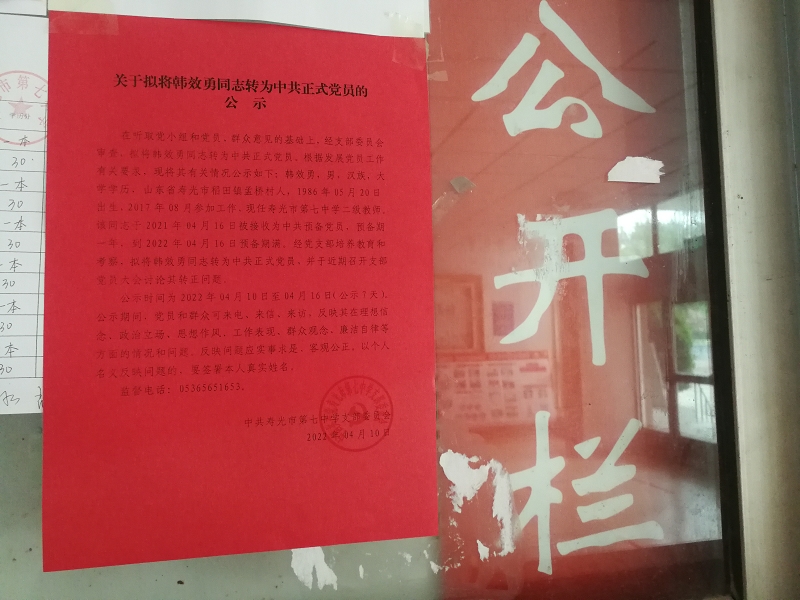 关于拟将韩效勇同志转为中共正式党员的
公 示
在听取党小组和党员、群众意见的基础上,经支部委员会
审查,拟将韩效勇同志转为中共正式党员。根据发展党员工作
有关要求,现将其有关情况公示如下:韩效勇,男,汉族,大
学学历,山东省寿光市稻田镇孟桥村人,1986年05月20日
出生,2017年08月参加工作,现任寿光市第七中学二级教师。
该同志于2021年04月16日被接收为中共预备党员,预备期
一年,到2022年04月16日预备期满。经党支部培养教育和
考察,拟将韩效勇同志转为中共正式党员,并于近期召开支部
党员大会讨论其转正问题。
公示时间为2022年04月10日至04月16日(公示7天)。
公示期间,党员和群众可来电、来信、来访,反映其在理想信
念、政治立场、思想作风、工作表现、群众观念、廉洁自律等
方面的情况和问题。反映问题应实事求是、客观公正。以个人
名义反映问题的,要签署本人真实姓名。
监督电话:05365651653。
中共寿光市第七中学支部委员会
2022年04月10日
公
开
栏
一本
30
一本
30
一本
30
一本
30
一本
30
本
30